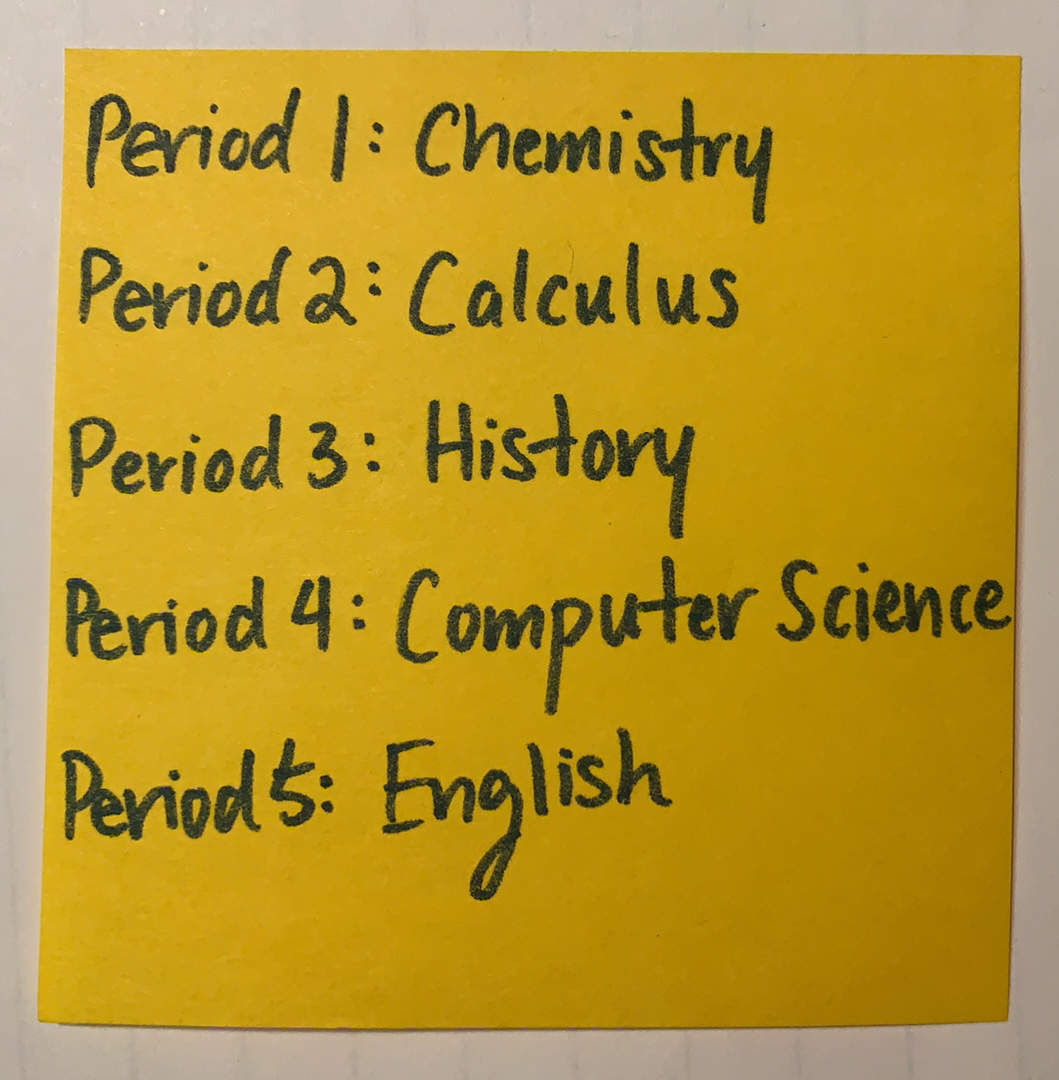 Period 1: Chemistry
Period 2: Calculus
Period 3: History
Period 4: Computer Science
Period 5: English